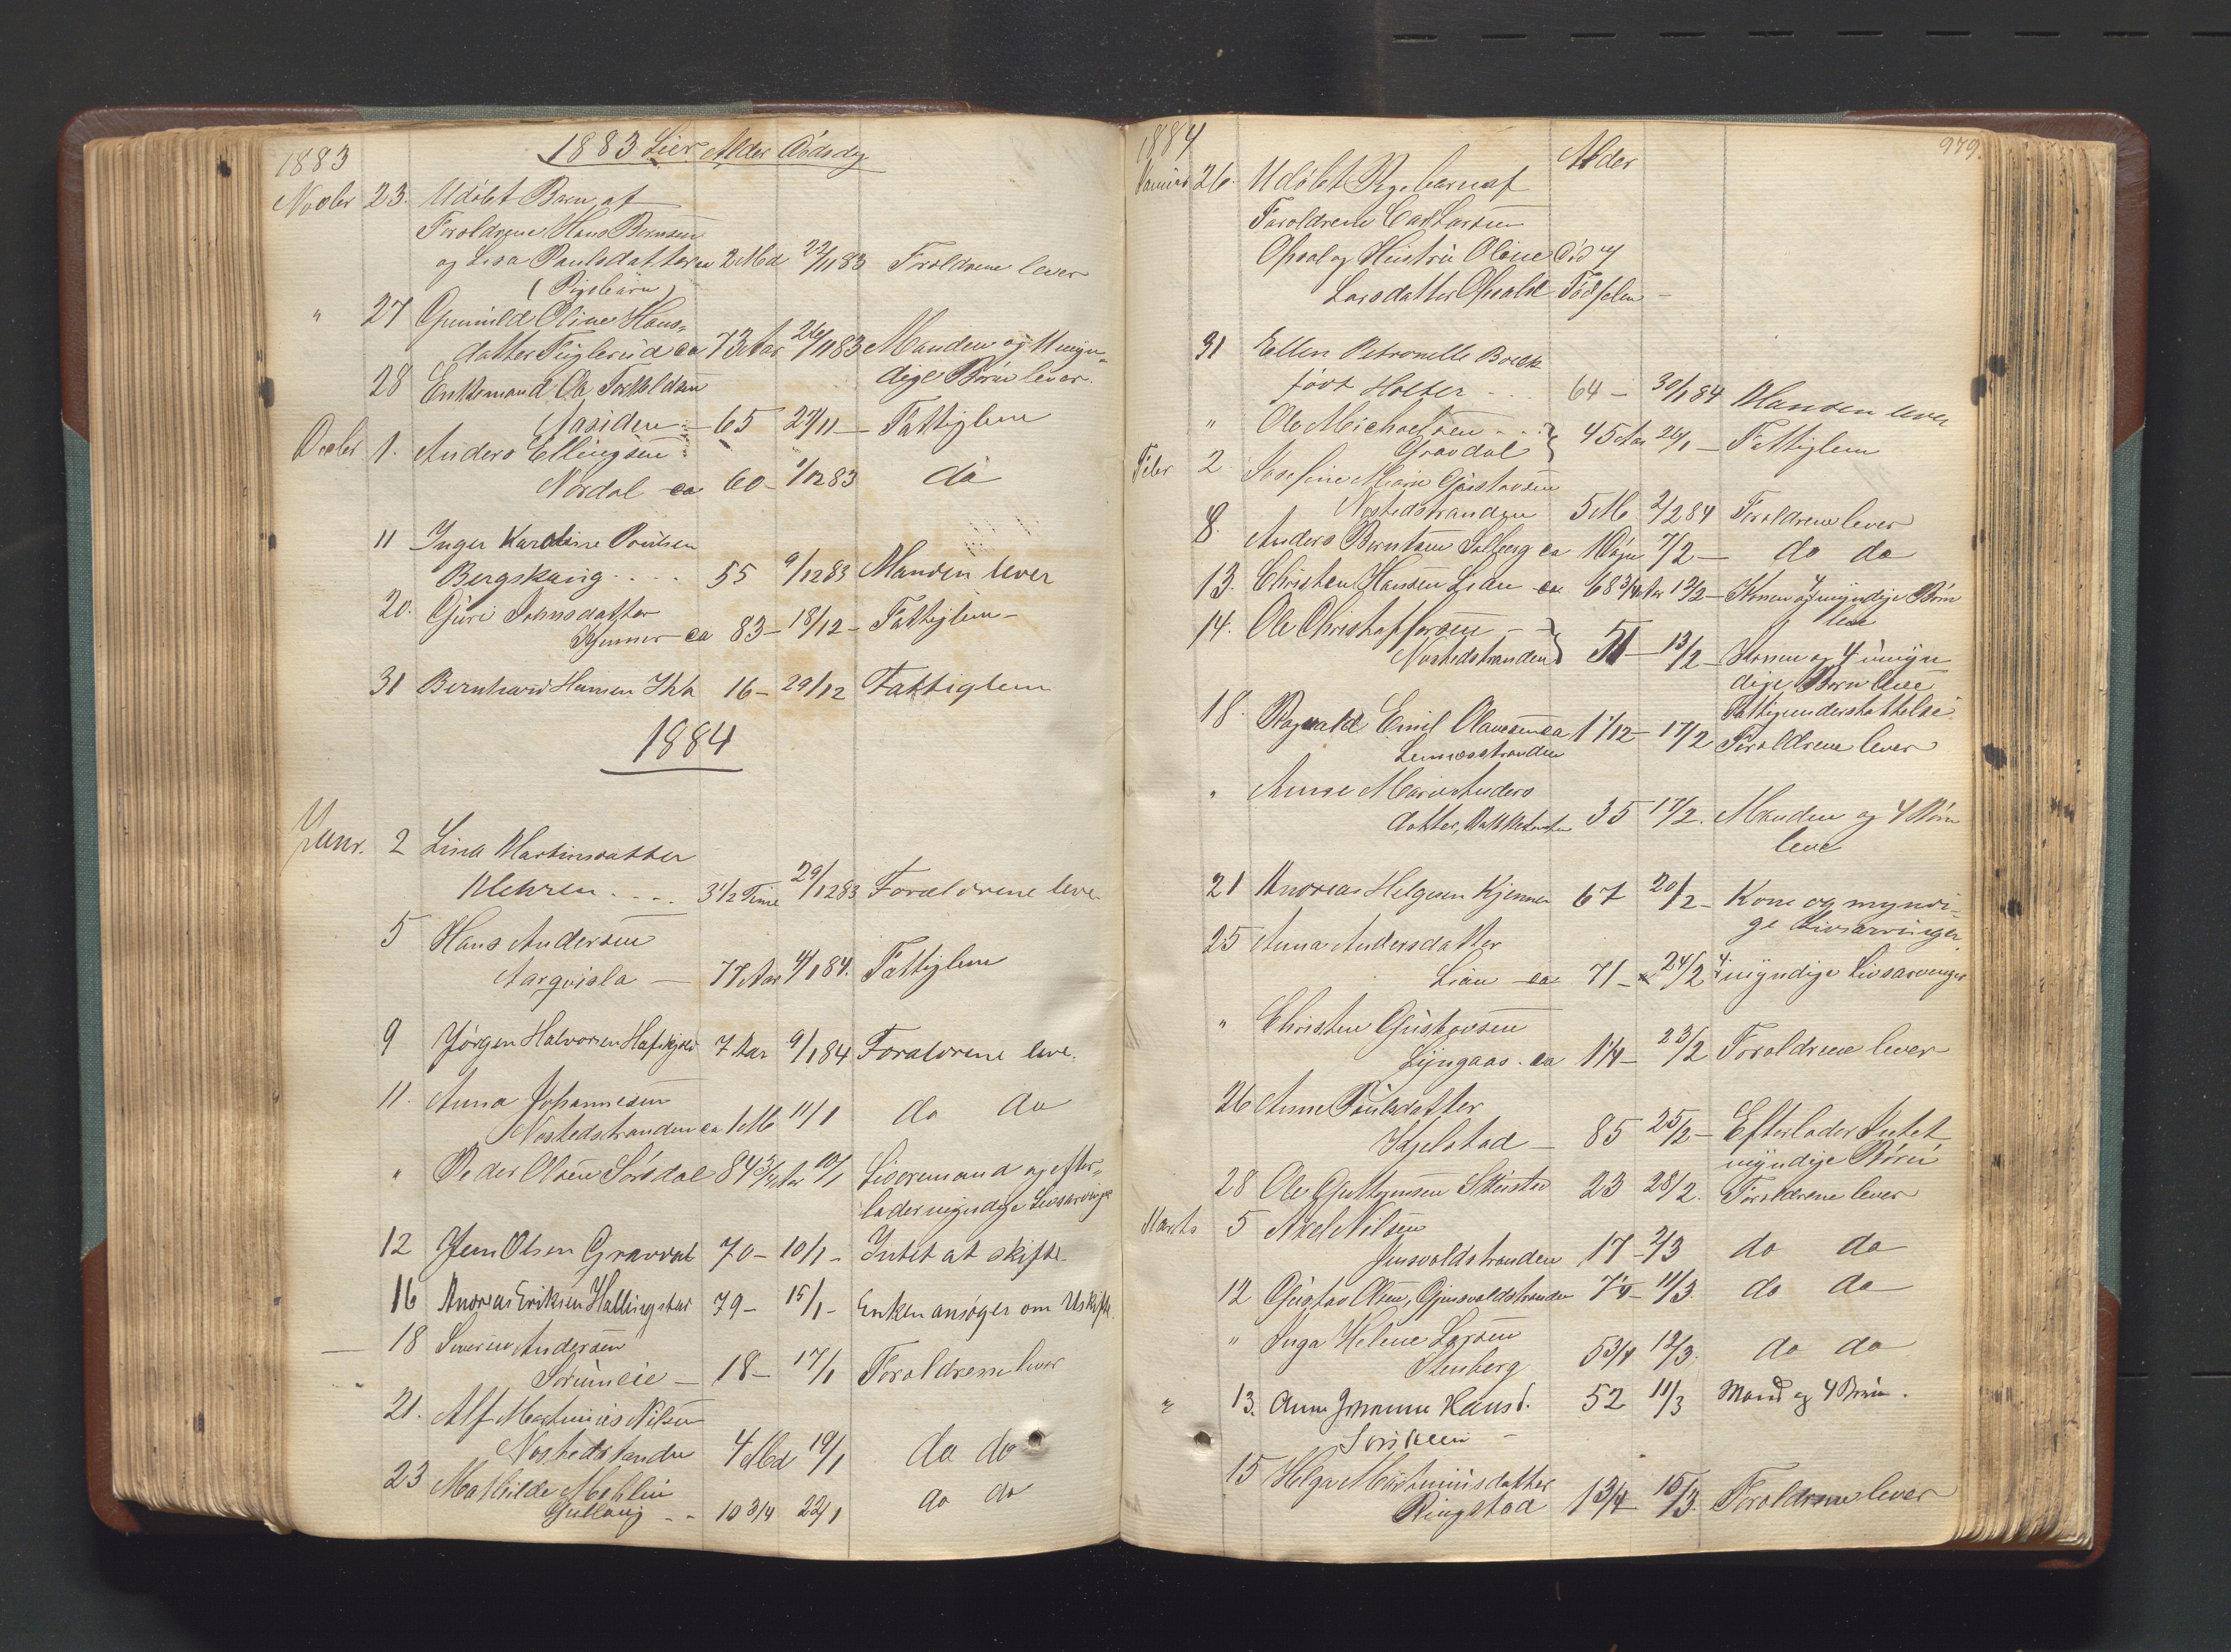 1883
1883 Lier Alder Dødsdag
Novbr 23. Udøbt Barn af
Forældrene Hans Berntsen
og Lisa Paulsdatter ca 2 Md 22/11 83 Forældrene lever
(Pigebarn)
" 27 Gunnild Oline Hans-
datter Fuglerud ca 73 Aar 26/11 83 Manden og umyn-
dige Børn lever.
28 Enkemand Ole Torkildsen
Aasiden – 65 27/11 – Fattiglem
Decbr 1. Anders Ellingsen
Nordal ca 60 – 1/12 83 do
11 Inger Karoline Poulsen
Bergskaug . . . . 55 9/12 83 Manden lever
20. Guri Johnsdatter
Kjenner ca 83 – 18/12 – Fattiglem –
31 Bernhard Hansen 16 – 29/12 Fattiglem
1884
Janr. 2 Lina Martinsdatter
Mehren . . . . 3 1/2 Time 29/12 83 Forældrene leve
5 Hans Andersen
Aarqvisla – 77 Aar 4/1 84. Fattiglem
9 Jørgen Halvorsen 7 Aar 9/1 84 Forældrene leve.
11. Anna Johannesen
Nøstedstranden ca 1 M 11/1 do do
" Peder Olsen Sørsdal 84 3/4 Aar 10/1 Livøremand og efter-
lader myndige Livsarvinger
12 Jens Olsen Gravdal 70 – 10/1 – Intet at skifte
16 Andreas Eriksen Hallingstad 79 – 15/1 – Enken ansøger om Uskifte
18 Severin Andersen
Sørumeie – 18 – 17/1 Forældrene lever
21. Alf Martinius Nilsen
Nøstedstranden 4 Md 19/1 do do
23 Mathilde Mehlin
Gullaug – – 10 3/4 22/1 do do
1884
979.
Alder
Januar 26. Udøbt Pigebarn af
Forældrene Carl Larsen
Opsal og Hustru Oline Død v
Larsdatter Opsahl Fødselen –
31 Ellen Petronelle Boeck
født Holter . . . 64 – 30/1 84 Manden lever
" Ole Michaelsen . . .
Gravdal 45 Aar 26/1 – Fattiglem
Febr 2 Josefine Marie Gustavsen
Nøstedstranden 5 M 2/2 84 Forældrene lever
8. Anders Berntsen Solberg ca 1 Døgn 7/2 – do do
13. Christen Hansen Lian ca 68 3/4 Aar 12/2 – Konen og myndige Børn
leve
14. Ole Christoffersen – –
Nøstedstranden 51 – 13/2 – Konen og 4 umyn
dige Børn leve
Fattigunderstøttelse
18. Ragvald Emil Olavesen ca 1 1/12 – 17/2 Forældrene lever
" Anne Marie Anders
datter, 35 17/2. Manden og 4 Børn
leve
21 Andreas Helgesen Kjenner 67 20/2 – Kone og myndi-
ge Livsarvinger.
25 Anna Andersdatter
Lian ca 71 – 24/2 4 myndige Livsarvinger
" Christen Gustavsen
Lyngaas. ca 1 1/4 – 23/2 Forældrene lever
26 Anne Poulsdatter
Kjelstad – 85 25/2 – Efterlader Intet
myndige Børn
28 Ole Guttormsen 23 28/2. Forældrene lever
Marts 5 Axel Nilsen
Gjusvoldstranden 17 – 2/3 do do
12 Gustav Olsen, Gjusvoldstranden 11/3. do do
" Inga Helene Larsen
Stenberg 5 3/4 12/3. do do
" 13. Anne Johanne Hansd. 52 11/3 Mand og 4 Børn.
15 Helga Martiniusdatter
Ringstad 1 3/4 15/3. Forældrene lever